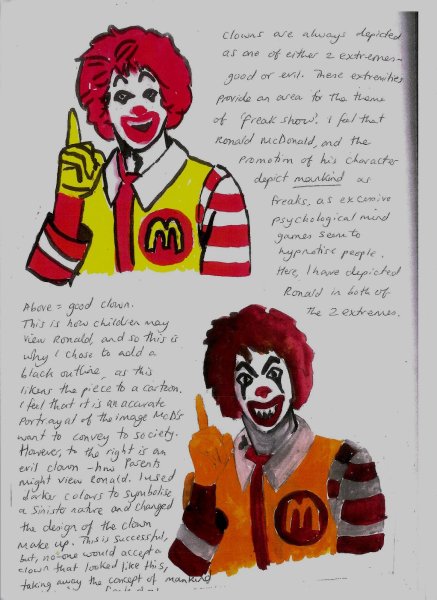 Clowns are always depicted
as one of either 2 extremes-
good or evil. These extremities
provide an area for the theme
of 'freak show'. I feel that
Ronald McDonald, and the
promotion of his character
depict mankind as
freaks, as excessive
psychological mind
games seem to
hypnotise people.
Here, I have depicted
Ronald in both of
the 2 extremes.
Above = good clown.
This is how children may
view Ronald, and so this is
why I chose to add a
black outline, as this
likens the piece to a cartoon.
I feel that it is an accurate
portrayal of the image McD's
want to convey to society.
However, to the right is an
evil clown - how parents
might view Ronald. I used
darker colours to symbolise
a sinister nature and changed
the design of the clown
make up. This is successful,
but, no-one would accept a
clown that looked like this,
taking away the concept of mankind
M
M